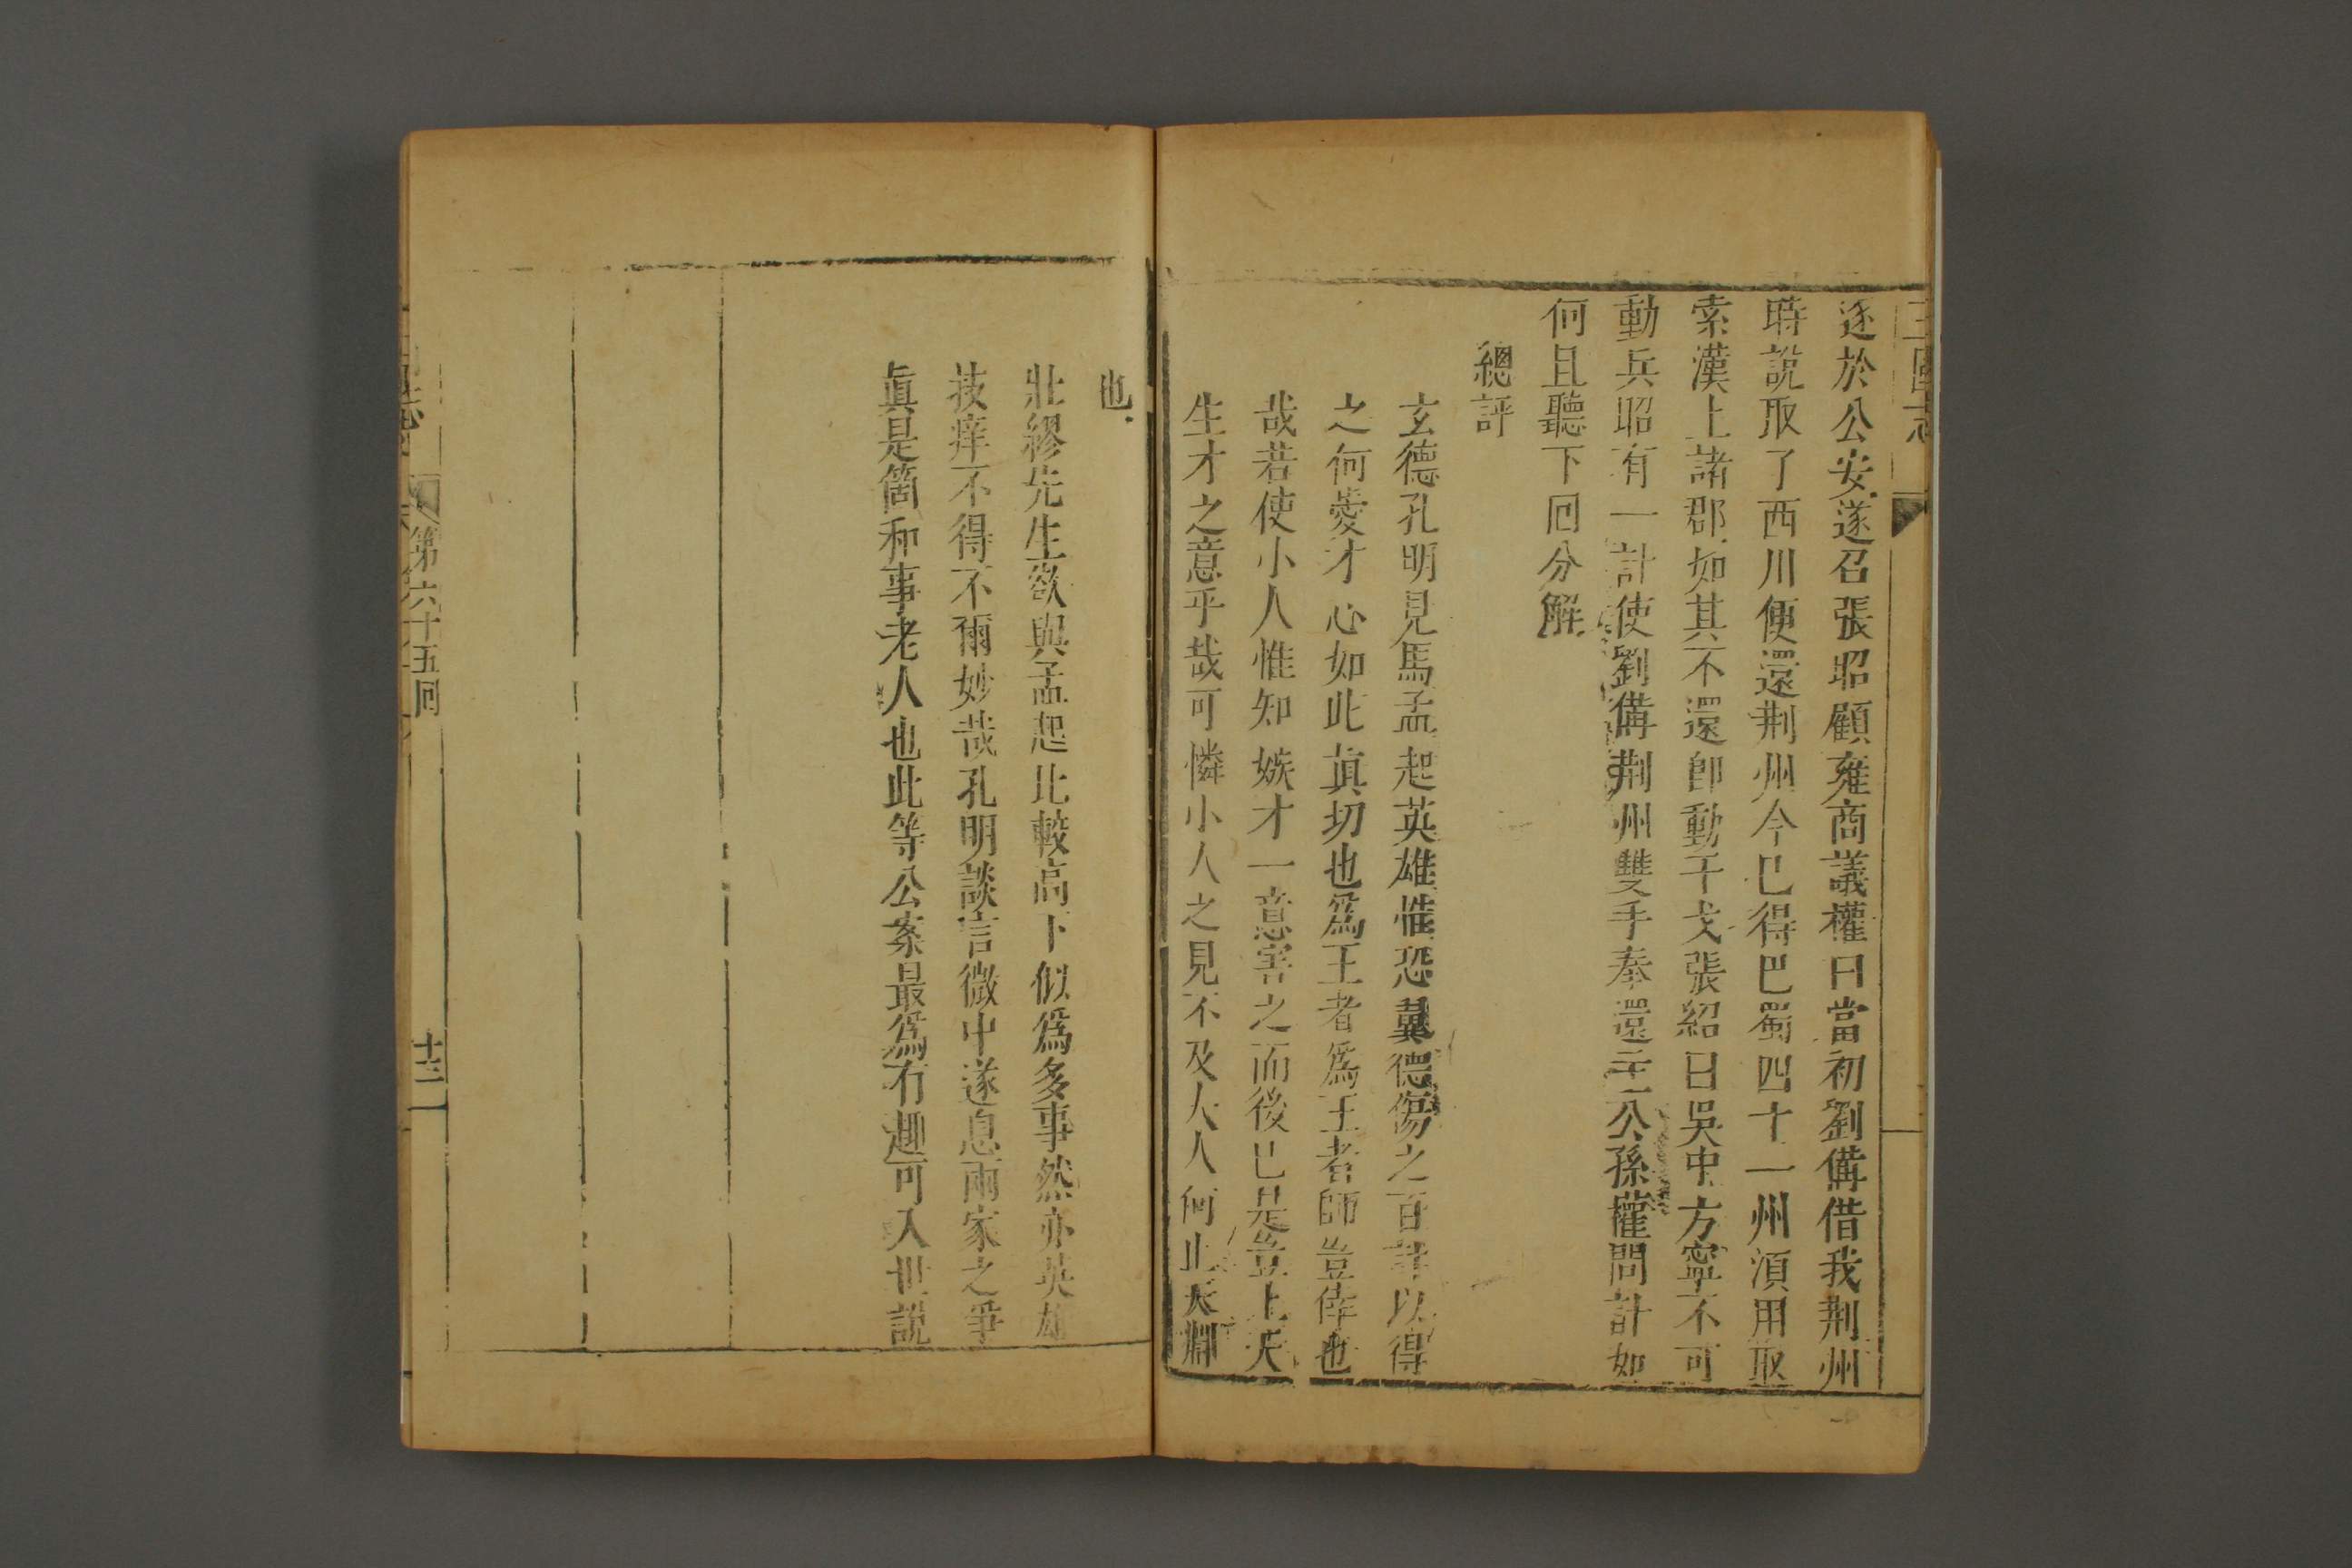 三國志
逐於公安遂召張昭顧雍商議權曰當初劉備借我荆州
時說取了西川便還荆州今已得巴蜀四十一州須用取
索漢上諸郡如其不還卽動干戈張紹曰吳中方寧不可
動兵昭有一計使劉備荆州雙手奉還主公孫權問計如
何且聽下回分解
總評
玄德孔明見馬孟起英雄惟恐翼德傷之百計以得
之何愛才心如此眞切也爲王者爲王者師豈倖也
哉若使小人惟知嫉才一意害之而後已是豈上天
生才之意乎哉可憐小人之見不及大人何止天淵
也
壯繆先生欲與孟起比較高下似爲多事然亦英雄
技痒不得不爾妙哉孔明談言微中遂息兩家之爭
眞是箇和事老人也此等公案最爲有趣可入世說
第六十五回
十三